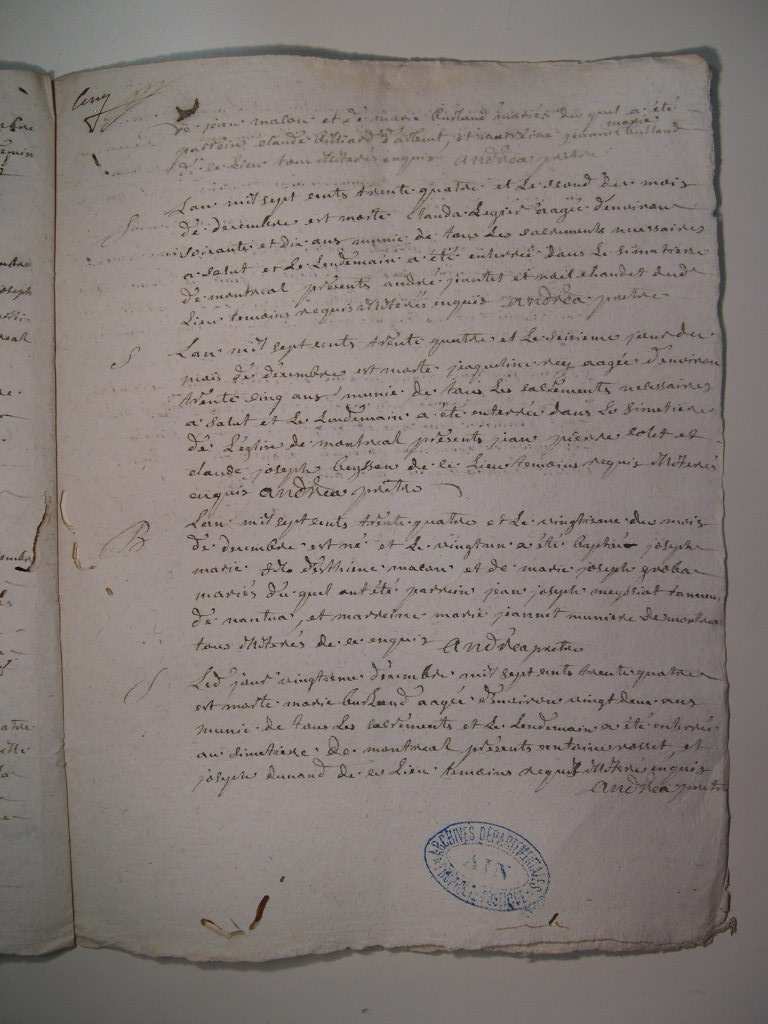 de jean macon et de marie burland mariés du quel a été
marie
parrein claude billiard d'allemt et marreine jeanne burland
de ce lieu tous illiterés enquis andréa pretre
S
Lan mil sept cents trente quatre et le second du mois
de decembre est morte Clauda Legier aagée d'environ
soixante et dix ans munie de tous les sacrements necessaires
a salut et le lendemain a été enterrée dans le simetiere
de montreal présents andré et
lieu temoins requis illiterés enquis andréa pretre
S
Lan mil sept cents trente quatre et le seisieme jour du
mois de décembre est morte jaqueline rey aagée d'environ
trente cinq ans munie de tous les sacréments necessaires
a salut et le lendemain a été enterrée dans le simetiere
de l'église de montreal présents jean pierre colet et
claude joseph beysson de ce lieu temoins requis illiterés
enquis andréa pretre
B
Lan mil sept cents trente quatre et le vingtieme du mois
de decembre est né et le vingtun a été baptisé joseph
marie fils d'esthiene macon et de marie joseph groba
mariés du quel ont été parrein jean joseph meyssiat tanneur
de nantua, et marreine marie jeannet muniere de montreal
tous illiterés de ce enquis andréa pretre
S
Led jour vingtieme décembre mil sept cents trente quatre
est morte marie burland aagée d'environ vingt deux ans
munie de tous les sacréments et le lendemain a été enterrée
au simetiere de montreal présents antoine rosset et
joseph dunand de ce lieu temoins requis illiterés enquis
andréa pretre
ARCHIVES DÉPARTEMENTALES
AIN